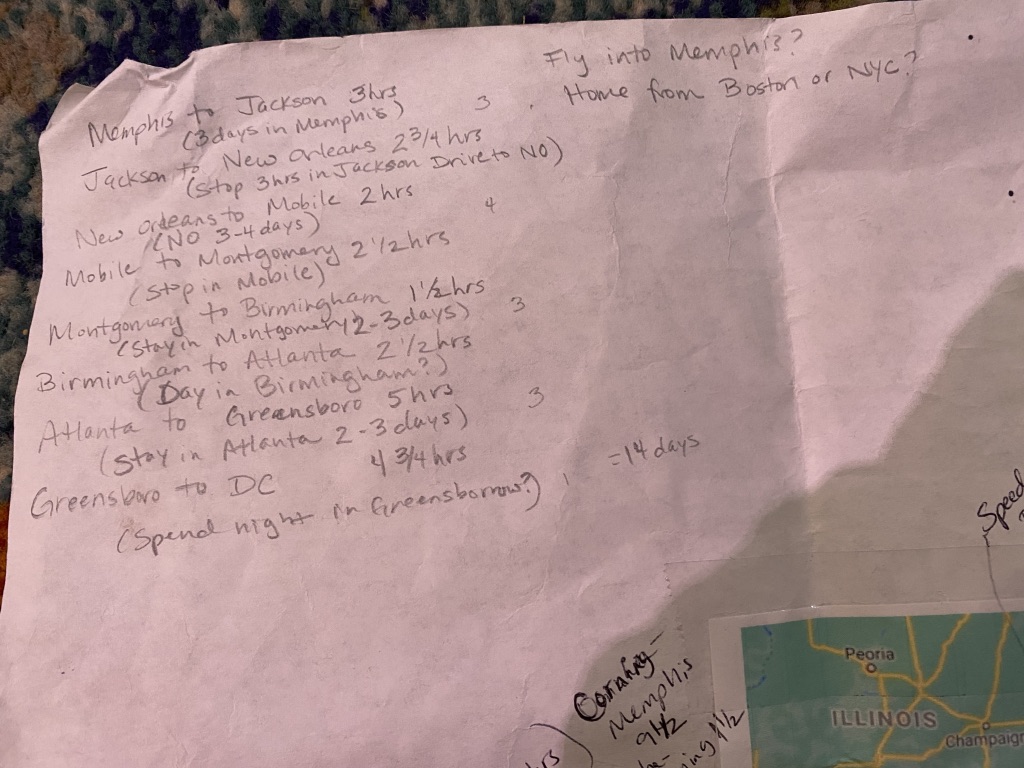 Fly into Memphis?
Home from Boston or NYC?
Memphis to Jackson 3hrs
(3days in Memphis) 3
Jackson to New Orleans 2 3/4 hrs
(stop 3hrs in Jackson Drive to NO)
New Orleans to Mobile 2 hrs
(NO 3-4days) 4
Mobile to Montgomery 2 1/2 hrs
(stop in Mobile)
Montgomery to Birmingham 1 1/2 hrs
(stay in Montgomery 2-3days) 3
Birmingham to Atlanta 2 1/2 hrs
(Day in Birmingham?)
Atlanta to Greensboro 5 hrs
(stay in Atlanta 2-3days) 3
Greensboro to DC 4 3/4 hrs
(Spend night in Greensborrow?) 1 =14 days
Speed
Corning-
Memphis
9 1/2
hrs)
Peoria
ILLINOIS
Champaign